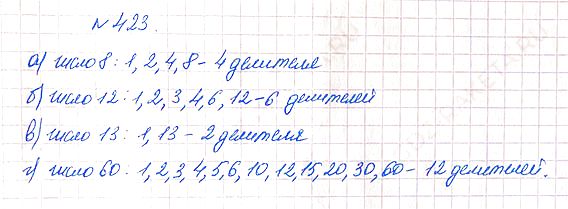 №423.
а) число 8: 1, 2, 4, 8 – 4 делителя
б) число 12: 1, 2, 3, 4, 6, 12 – 6 делителей
в) число 13: 1, 13 – 2 делителя
г) число 60: 1, 2, 3, 4, 5, 6, 10, 12, 15, 20, 30, 60 – 12 делителей.